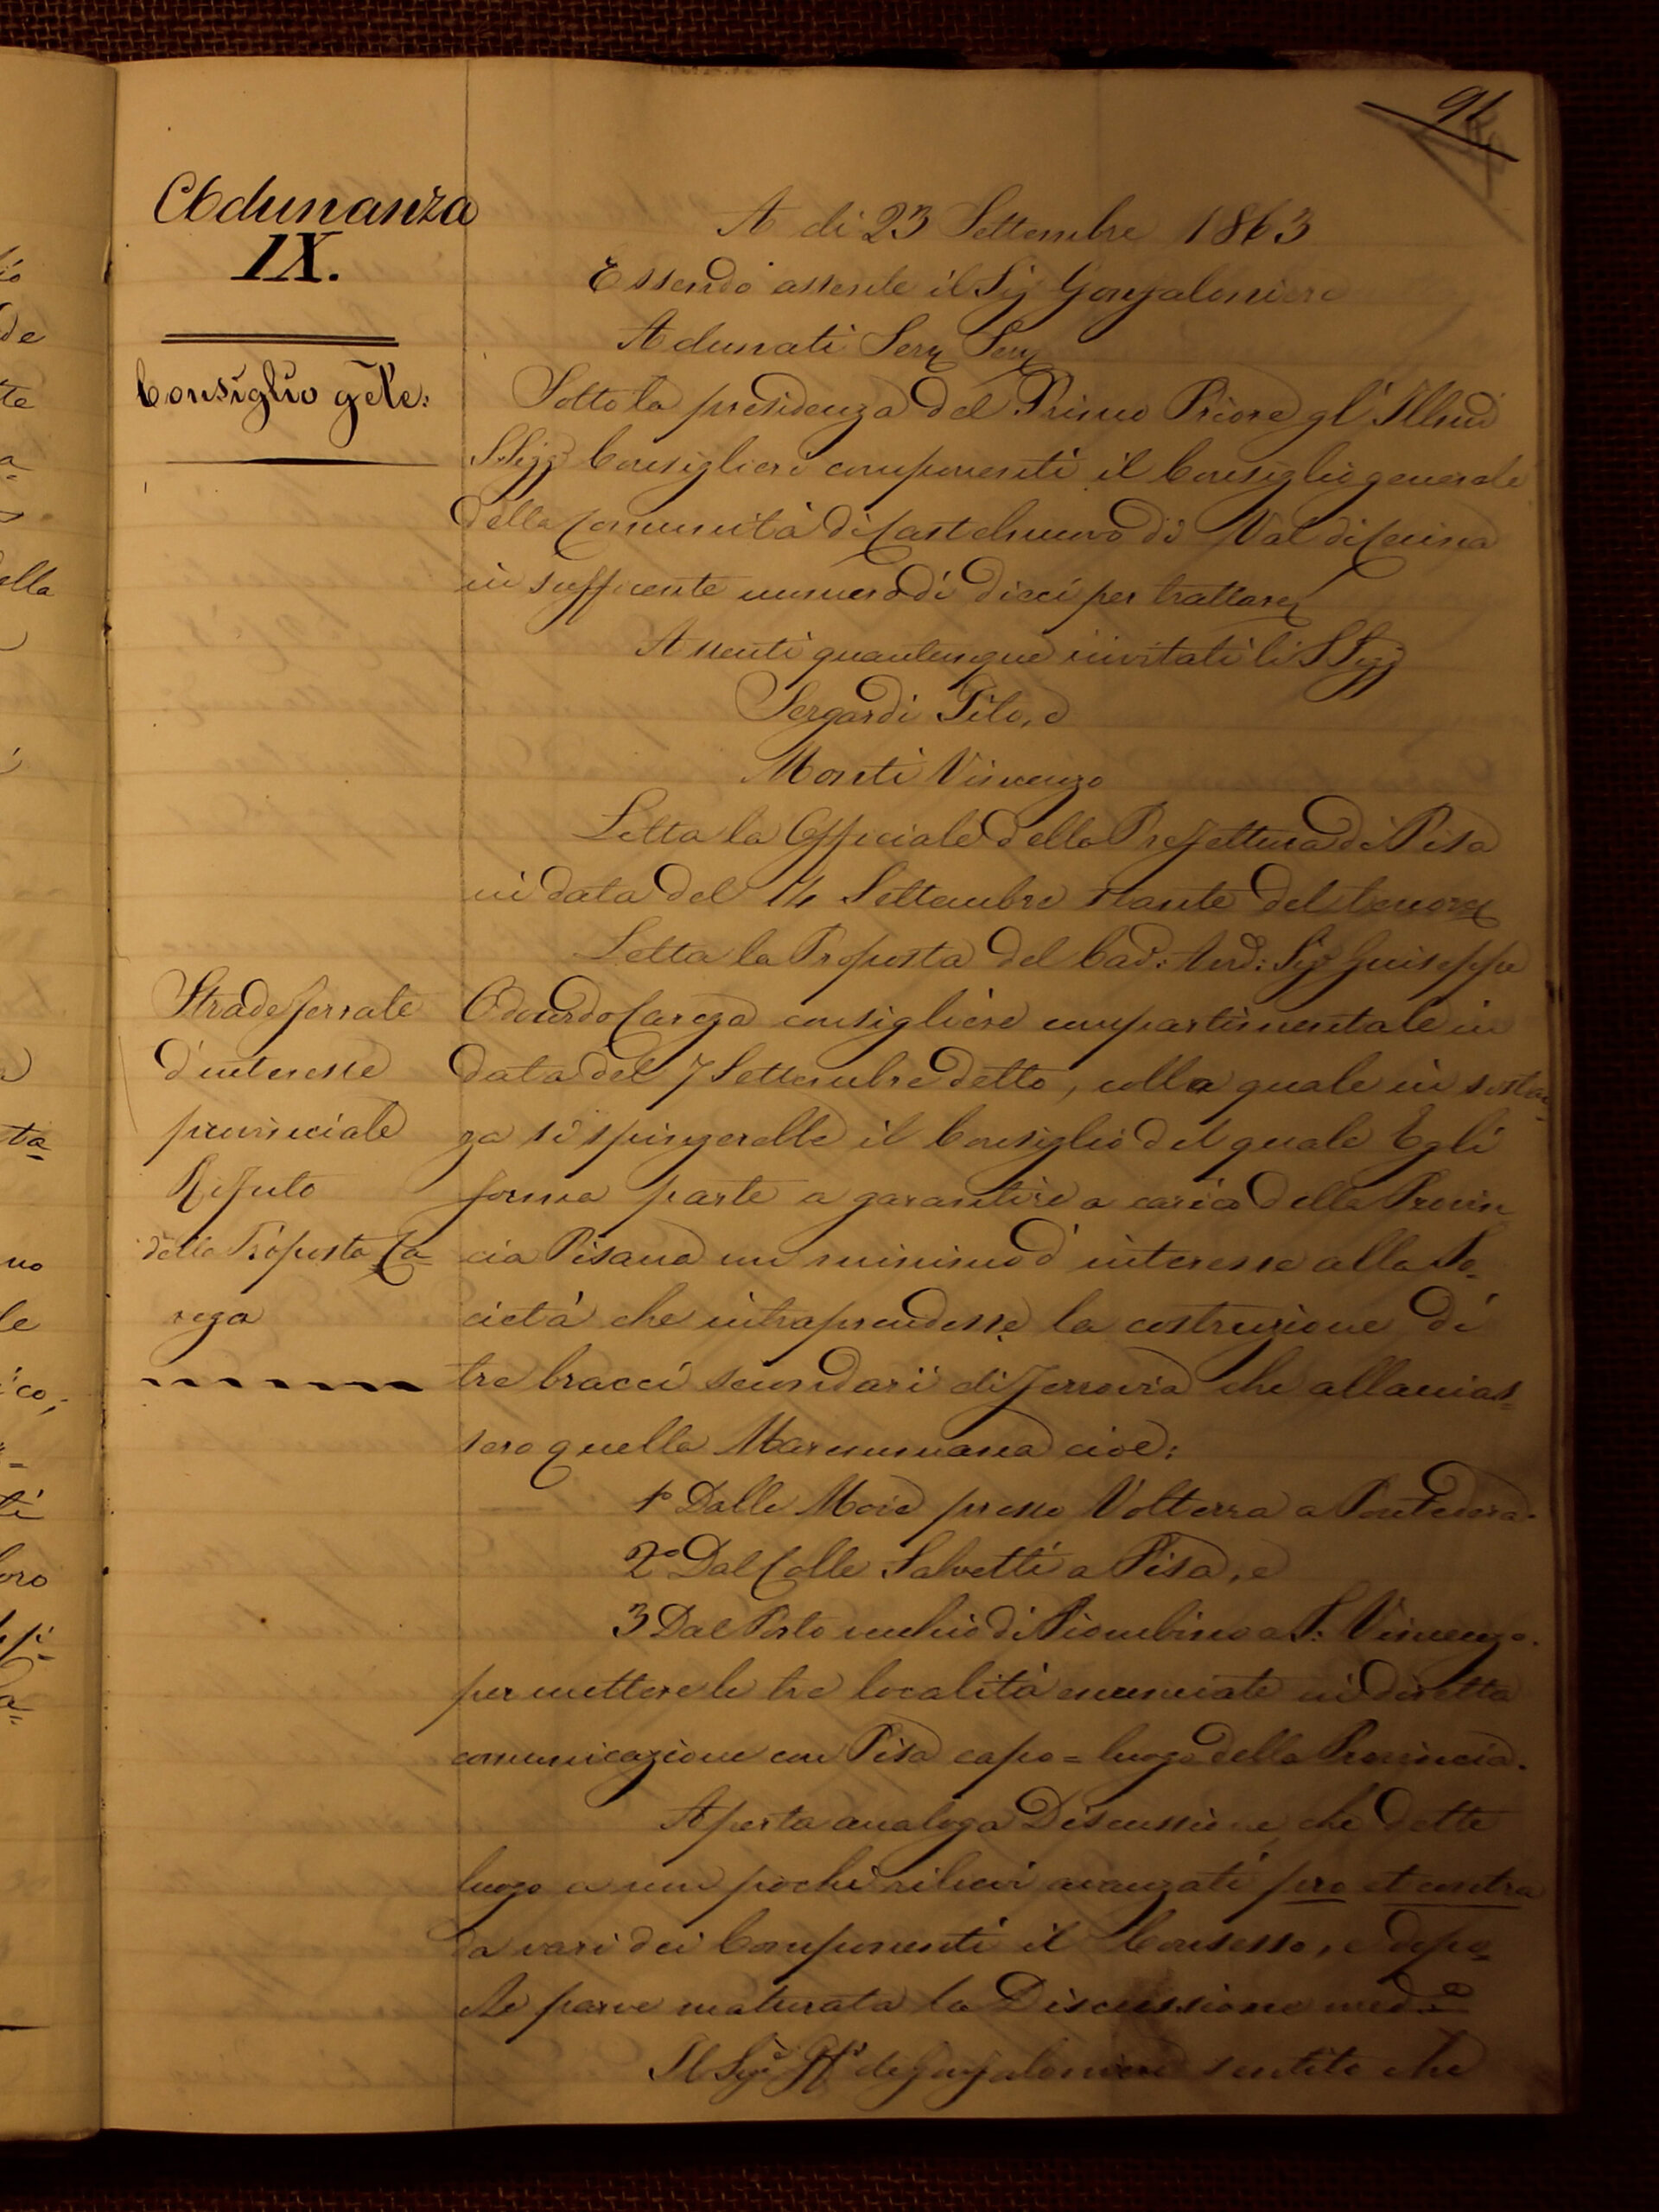 91
Adunanza
IX.
Consiglio gele:
A di 23 Settembre 1863
Essendo assente il Sig Gonfaloniere
Adunati Serv Serv
Sotto la presidenza del Primo Priore gl' Illmi
SSigg Consiglieri componenti il Consiglio generale
della Comunità di Castelnuovo di Val di Cecina
in sufficente numero di dieci per trattare
Assenti quantunque invitati li SSigg
Sergardi Tito, e
Monti Vincenzo
Letta la Officiale della Prefettura di Pisa
in data del 14 Settembre stante del tenore
Letta la Proposta del Cav: Avv: Sigr Guiseppe
Odoardo Carega consigliere compartimentale in
data del 7 Settembre detto, colla quale in sostan-
za si spingerebbe il Consiglio del quale Egli
forma parte a garantire a carico della Provin
cia Pisana un minimo d' interesse alla So-
cietà che intraprendesse la costruzione di
tre bracci secondarii di ferrovia che allacias-
sero quella Maremmana cioè:
1o Dalle Moie presso Volterra a Pontedera.
2o Dal Colle Salvetti a Pisa, e
3 Dal Porto vecchio di Piombino a S: Vincenzo.
per mettere le tre località enunciate in diretta
comunicazione con Pisa capo=luogo della Provincia.
Aperta analoga Discussione che dette
luogo a non pochi rilievi avanzati pro et contra
da vari dei Componenti il Consesso, e depo-
che parve maturata la Discussione medma
Il Sigr ff di Gonfaloniere sentito che
Strade ferrate
d'interesse
provinciale
Rifiuto
della Proposta Ca-
rega